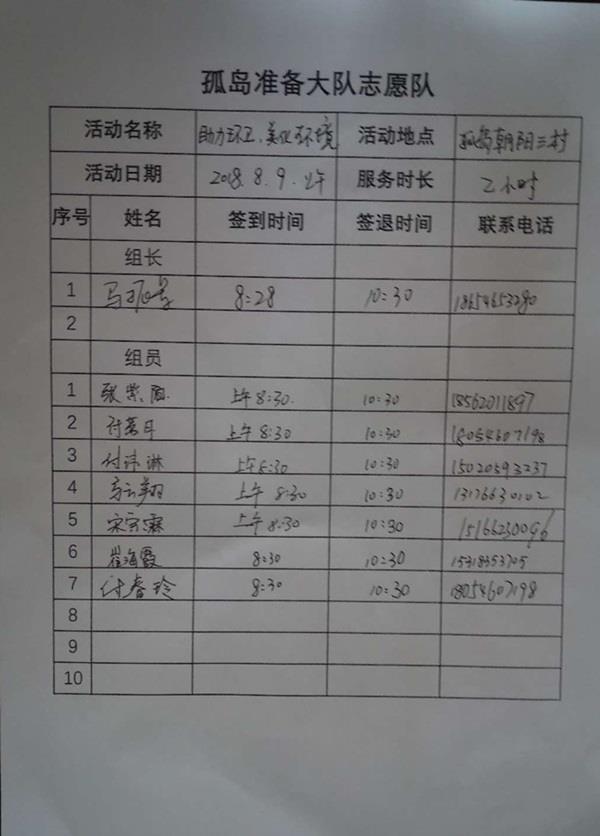 孤岛准备大队志愿队
活动名称 助力环卫、美化环境 活动地点 孤岛朝阳三村
活动日期 2018.8.9.上午 服务时长 2小时
序号 姓名 签到时间 签退时间 联系电话
组长
1 马 8:28 10:30 18654653280
2
组员
1 张紫阳 上午8:30. 10:30 18562011897
2 付 上午8:30 10:30 18054607198
3 付沛淋 上午8:30 10:30 15020593237
4 高云翔 上午8:30 10:30 13176630102
5 宋宗霖 上午8:30 10:30 15166230096
6 崔海霞 8:30 10:30 15318353705
7 付春玲 8:30 10:30 18054607198
8
9
10